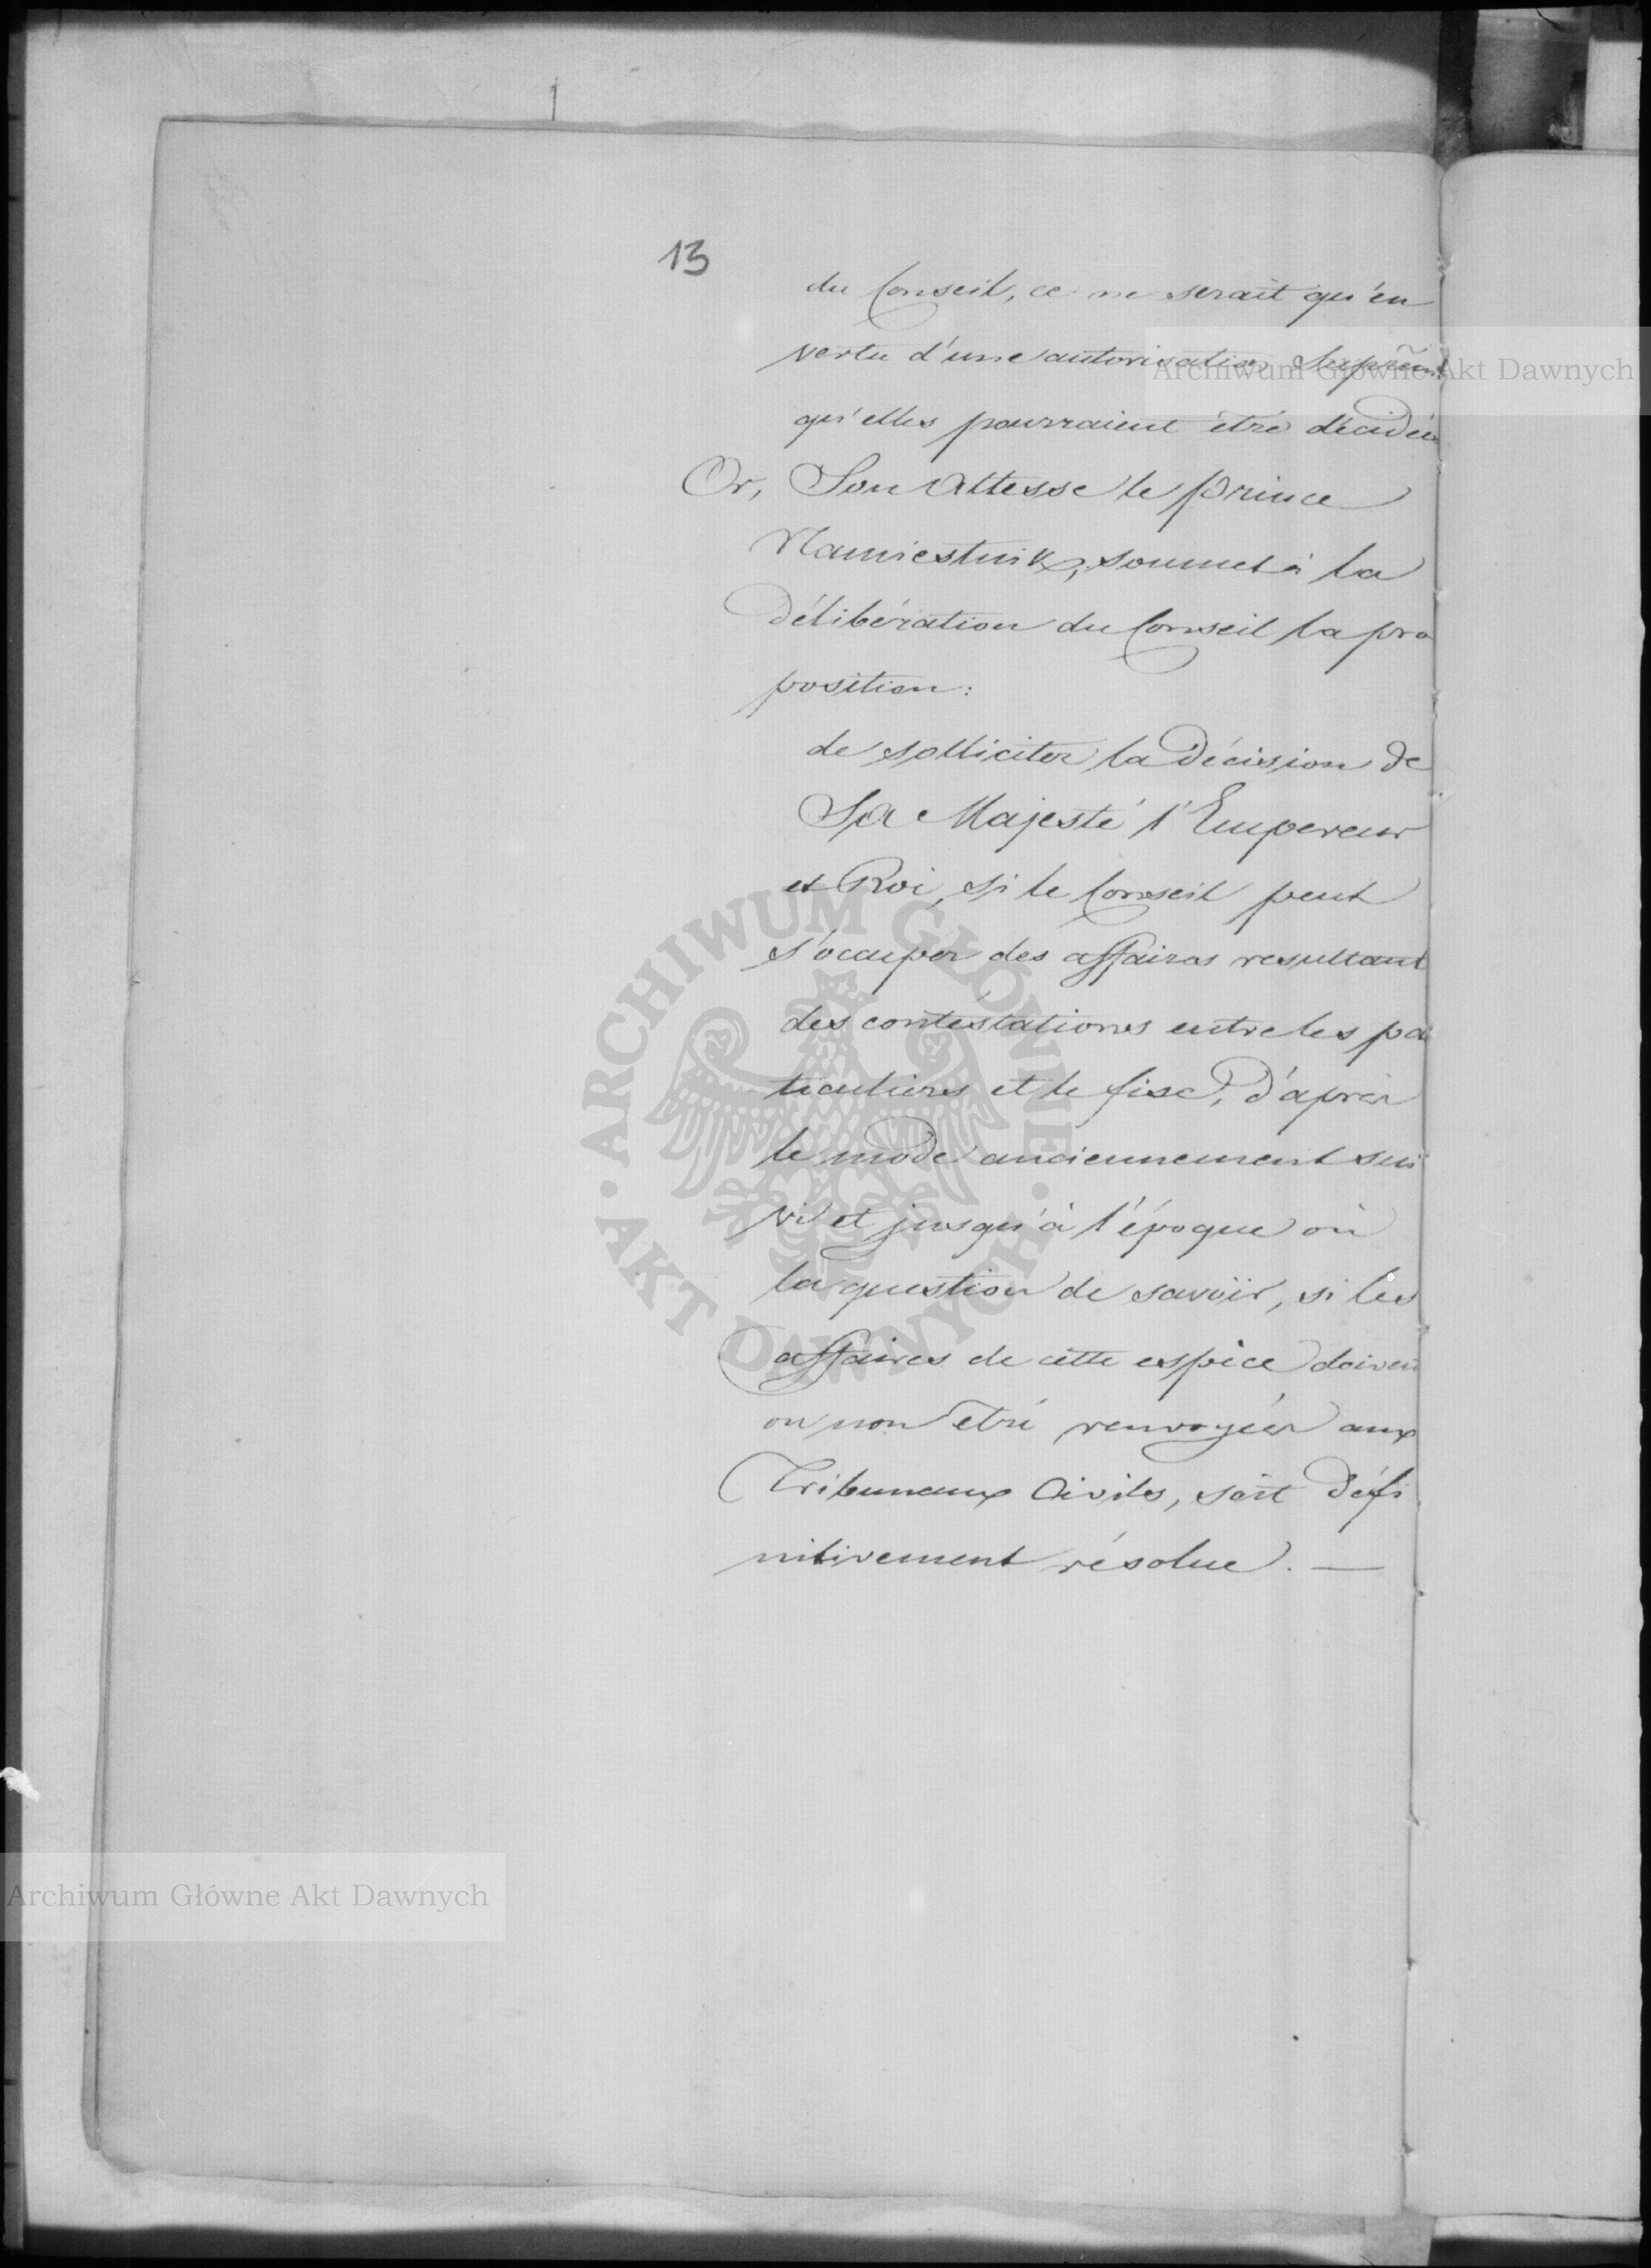 13
du Conseil, ce ne serait qu'en
vertu d'une autorisation Suprême
qu'elles pourraient être décidées
Or, Son Altesse le Prince
Namiestnik, soumet à la
délibération du Conseil la pro
position:
de solliciter la décision de
Sa Majesté l'Empereur
et Roi, si le Conseil peut
s'occuper des affaires resultant
des contéstations entre les par
ticuliers et le fisc, d'après
le mode anciennement sui
vi et jusqu'à l'époque où
la question de savoir, si les
affaires de cette espèce doivent
ou non être renvoyées aux
Tribunaux Civils, soit défi
nitivement résolue. —
Archiwum Główne Akt Dawnych
ARCHIWUM GŁÓWNE · AKT DAWNYCH ·
Archiwum Główne Akt Dawnych